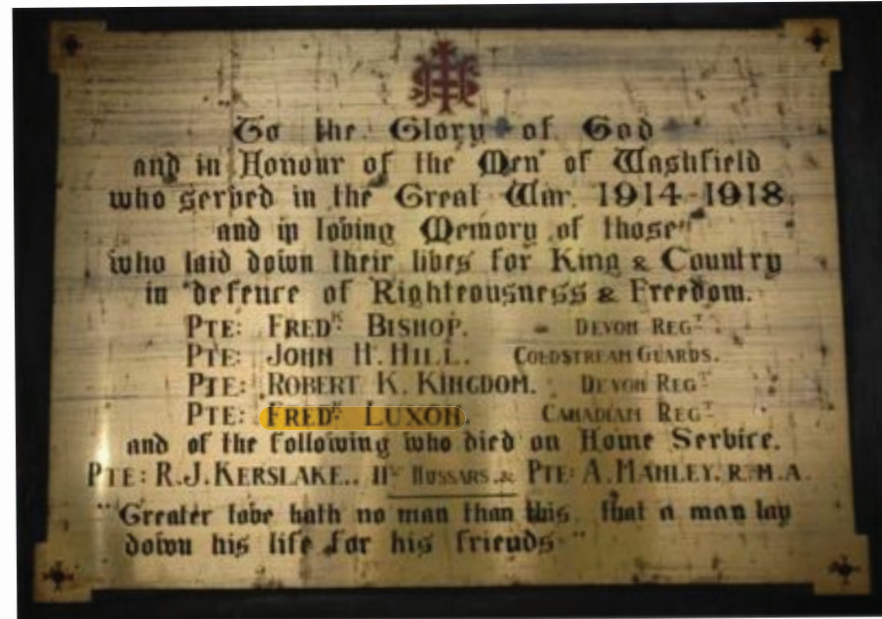 IHS
To the Glory of God
and in Honour of the Men of Washfield
who served in the Great War. 1914-1918
and in loving Memory of those
who laid down their lives for King & Country
in defence of Righteousness & Freedom.
PTE: FREDK BISHOP. - DEVON REGT.
PTE: JOHN H. HILL. COLDSTREAM GUARDS.
PTE: ROBERT K. KINGDOM. DEVON REGT
PTE: FREDK LUXON. CANADIAN REGT
and of the following who died on Home Service.
PTE: R.J. KERSLAKE.. HUSSARS. & PTE: A. MANLEY. R.M.A.
"Greater love hath no man than this, that a man lay
down his life for his friends."